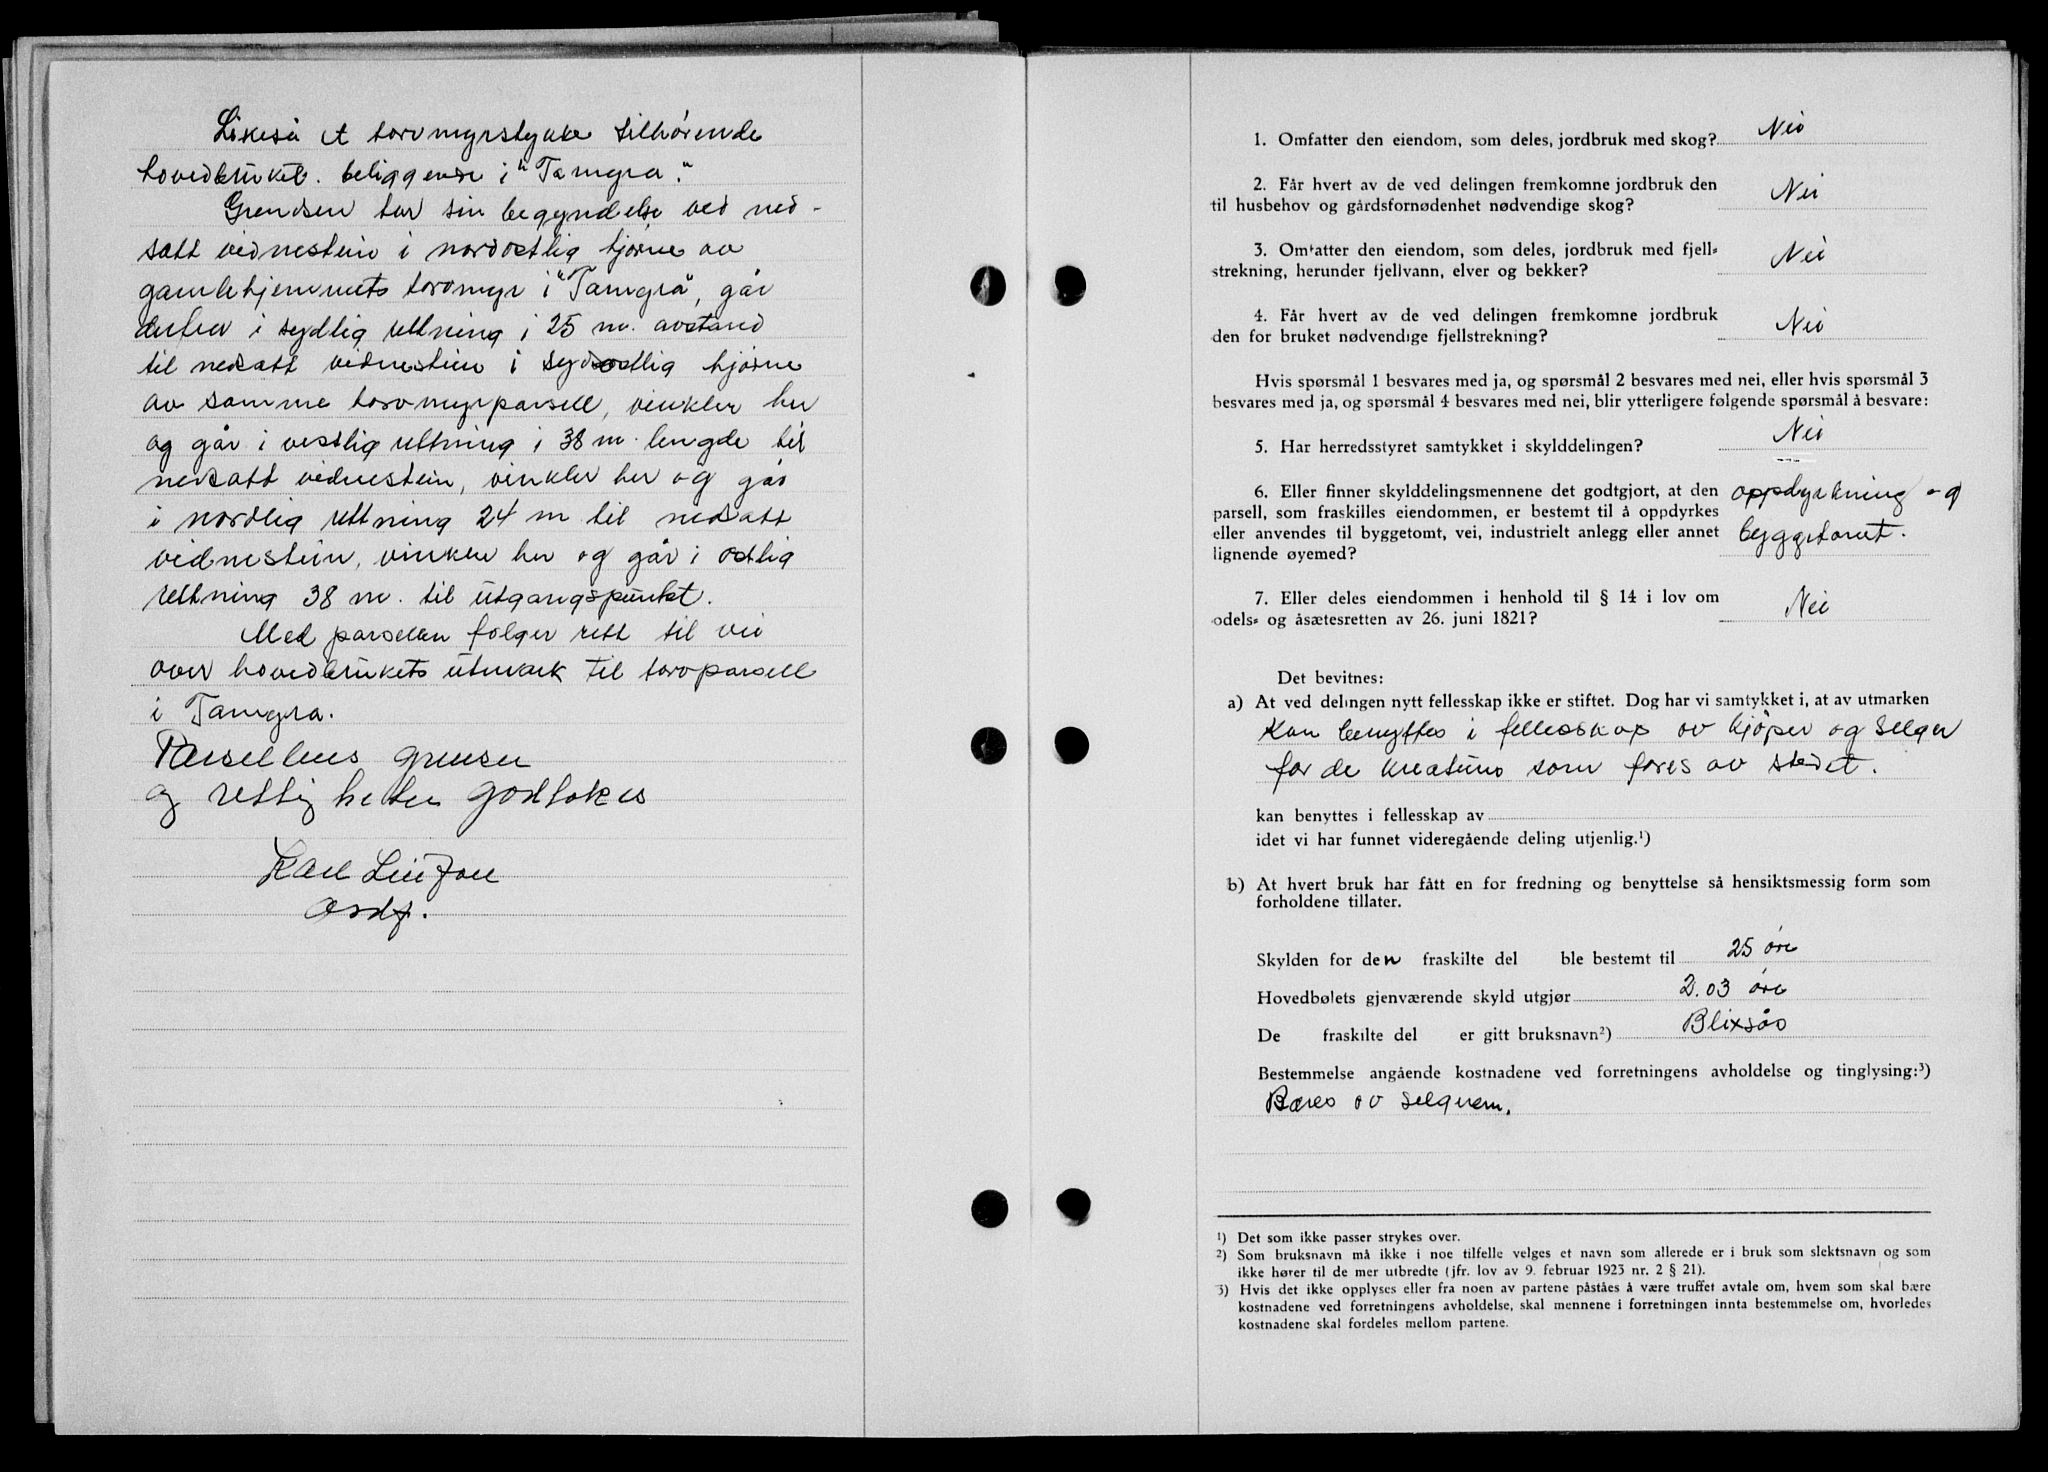 Likeså et torvmyrstykke tilhørende
hovedbruket. beliggende i "Tamgra".
Grendsen tar sin begyndelse ved ned-
satt vidnestein i nordostlig hjørne av
gamlehjemmets torvmyr i "Tamgra", går
derfra i sydlig rettning i 25 m. avstand
til nedsatt vidnestein i sydostlig hjørne
av samme torvmyrparsell, vinkler her
og går i vestlig rettning i 38 m. lengde til
nedsatt vidnestein, vinkler her og går
i nordlig rettning 24 m til nedsatt
vidnestein, vinkler her og går i ostlig
rettning 38 m. til utgangspunkt.
Med parsellen følger rett til vei
over hovedbrukets utmark til torvparsell
i Tamgra.
Parsellens grenser
og rettigheter godtokes
Karl
1. Omfatter den eiendom, som deles, jordbruk med skog? Nei
2. Får hvert av de ved delingen fremkomne jordbruk den
til husbehov og gårdsfornødenhet nødvendige skog? Nei
3. Omfatter den eiendom, som deles, jordbruk med fjell-
strekning, herunder fjellvann, elver og bekker? Nei
4. Får hvert av de ved delingen fremkomne jordbruk
den for bruket nødvendige fjellstrekning? Nei
Hvis spørsmål 1 besvares med ja, og spørsmål 2 besvares med nei, eller hvis spørsmål 3
besvares med ja, og spørsmål 4 besvares med nei, blir ytterligere følgende spørsmål å besvare:
5. Har herredsstyret samtykket i skylddelingen? Nei
6. Eller finner skylddelingsmennene det godtgjort, at den oppdyrkning og
parsell, som fraskilles eiendommen, er bestemt til å oppdyrkes
eller anvendes til byggetomt, vei, industrielt anlegg eller annet byggetomt.
lignende øyemed?
7. Eller deles eiendommen i henhold til § 14 i lov om
odels- og åsætesretten av 26. juni 1821? Nei
Det bevitnes:
a) At ved delingen nytt fellesskap ikke er stiftet. Dog har vi samtykket i, at av utmarken
kan benyttes i fellesskap av kjøper og selger
for de kreaturer som fores av stedet.
kan benyttes i fellesskap av
idet vi har funnet videregående deling utjenlig.¹)
b) At hvert bruk har fått en for fredning og benyttelse så hensiktsmessig form som
forholdene tillater.
Skylden for den fraskilte del ble bestemt til 25 øre
Hovedbølets gjenværende skyld utgjør 2.03 øre
De fraskilte del er gitt bruksnavn²) Blixsås
Bestemmelse angående kostnadene ved forretningens avholdelse og tinglysing:³)
Bæres av selgeren.
¹) Det som ikke passer strykes over.
²) Som bruksnavn må ikke i noe tilfelle velges et navn som allerede er i bruk som slektsnavn og som
ikke hører til de mer utbredte (jfr. lov av 9. februar 1923 nr. 2 § 21).
³) Hvis det ikke opplyses eller fra noen av partene påståes å være truffet avtale om, hvem som skal bære
kostnadene ved forretningens avholdelse, skal mennene i forretningen innta bestemmelse om, hvorledes
kostnadene skal fordeles mellom partene.